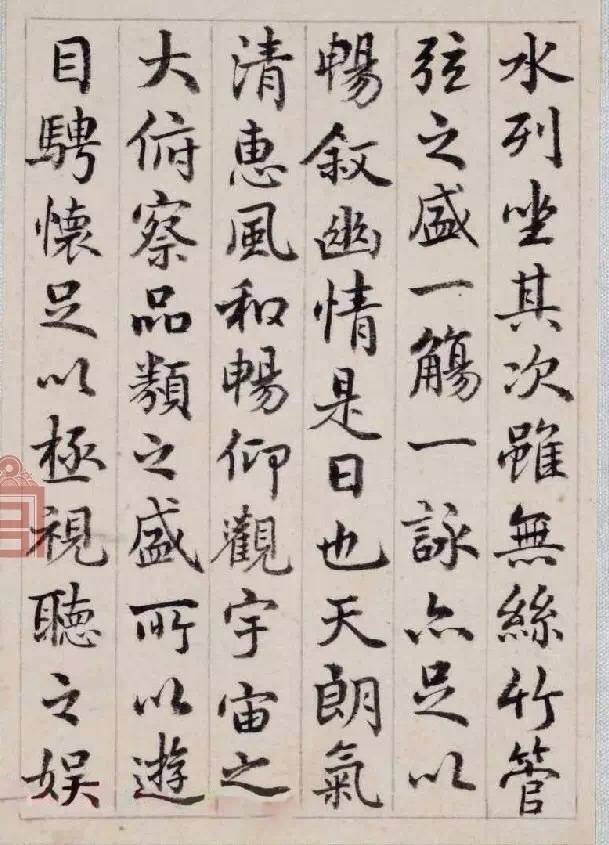 水列坐其次雖無絲竹管
弦之盛一觴一詠亦足以
暢叙幽情是日也天朗氣
清惠風和暢仰觀宇宙之
大俯察品類之盛所以遊
目騁懷足以極視聽之娛